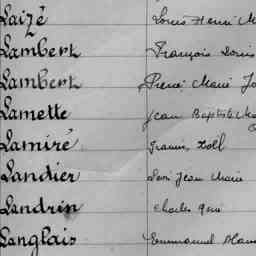 Laizé Louis Henri M
Lambert François Louis
Lambert René Marie Jo
Lamette Jean Baptiste Ma
Lamiré Francis, Zoël
Landier Jean Marie
Landrin Charles René
Langlais Emmanuel